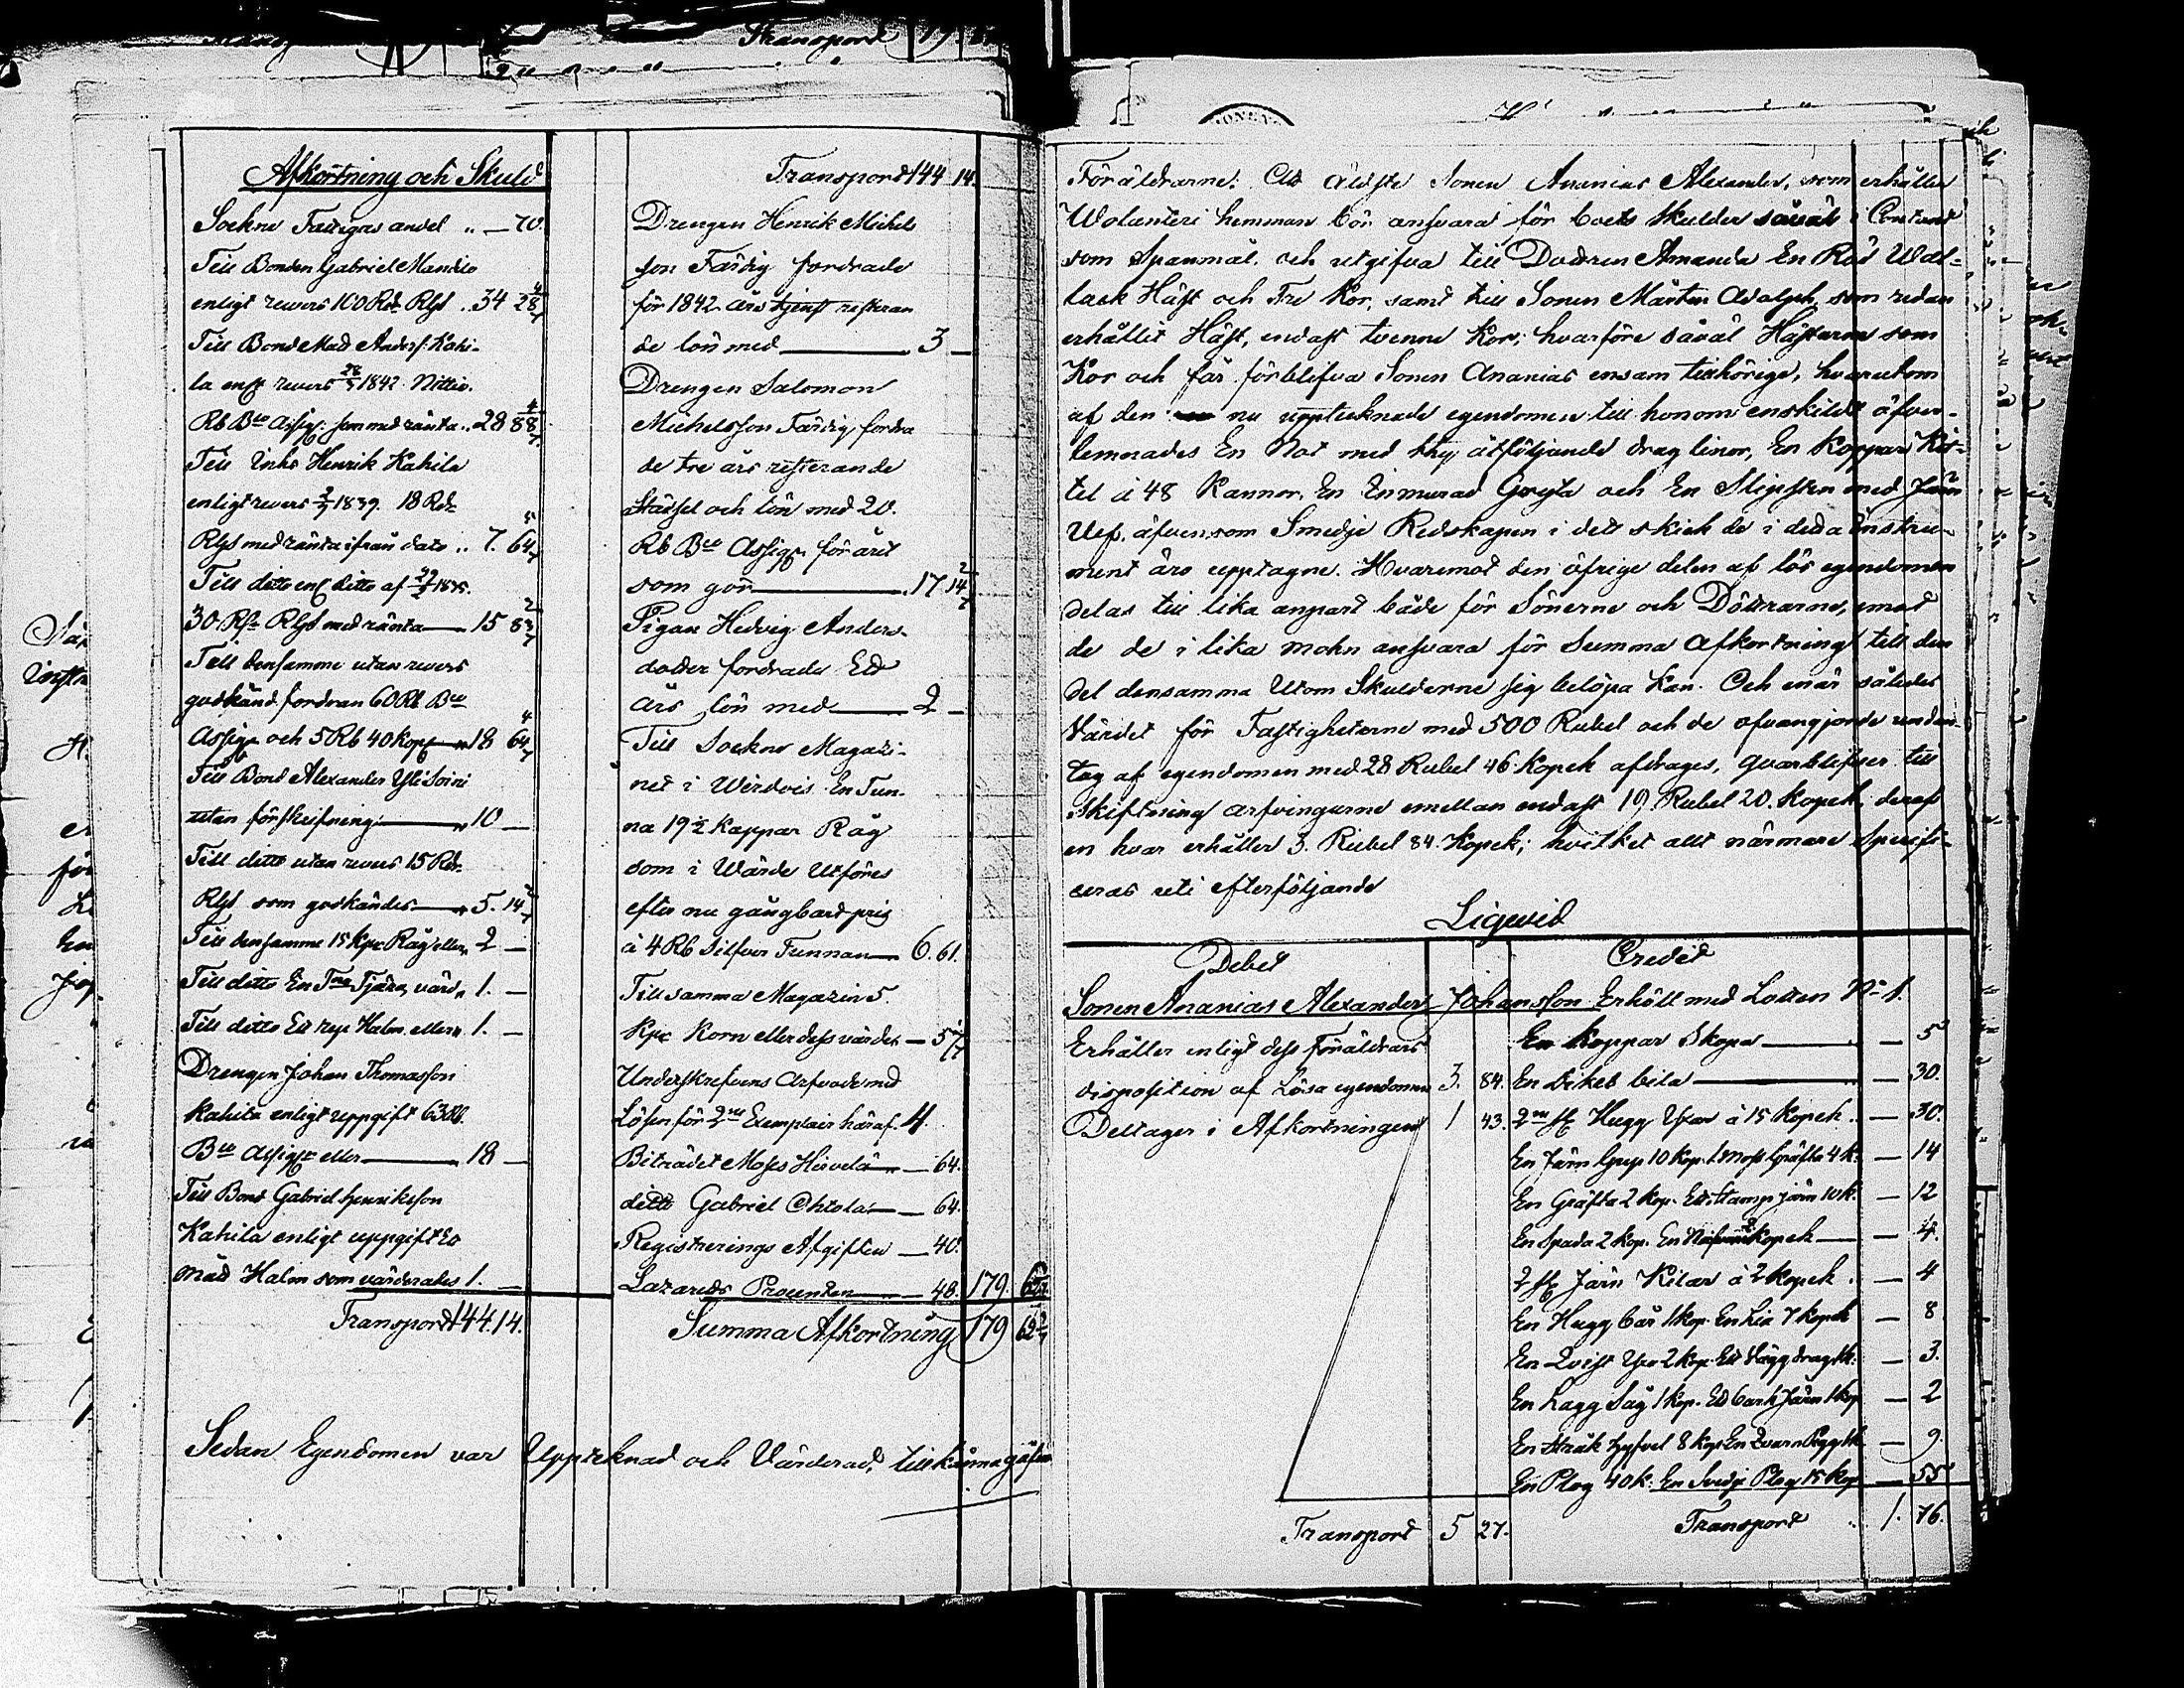 Transport
Afkortning och Skuld
Sockne Fattigas andel .. — 70.
Till Bonden Gabriel Mandila
enligt revers 100 Rdr Rgs .. 34 28 4/7
Till Bond Mad Anders: Kahi-
la enl revers 28/5 1842 Nittio
Rb Bco Assigr: som med ränta .. 28 88 4/7
Till Inhs Henrik Kahila
enligt revers 2/7 1839. 18 Rdr
Rgs med ränta ifrån dato .. 7. 64 5/7
Till ditto enl ditto af 1835.
30 Rdr Rgs med ränta — 15 83 2/7
Till densamme utan revers
godkänd fordran 60 Rb Bco
Assigr och 5 Rb 40 kop — 18 64 4/7
Till Bond Alexander Yli Soini
utan förskrifning — 10 —
Till ditto utan revers 15 Rdr
Rgs som godkändes — 5. 14 2/7
Till densamme 15 Kpr Råg eller 2 —
Till ditto En Tna Tjära, värd 1. —
Till ditto Ett rep Halm eller 1. —
Drengen Johan Thomasson
Kahila enligt uppgift 63 Rb.
Bco Assigr eller — 18 —
Till Bond Gabriel Henriksson
Kahila enligt uppgift En
mad Halm som värderades 1. —
Transport 144. 14.
Transport 144 14.
Drengen Henrik Michels
son Färdig fordrade
för 1842 års tjenst resteran
de lön med — 3 —
Drengen Salomon
Michelsson Färdig, fordra
de tre års resterande
Städsel och lön med 20.
Rb Bco Assigr för året
som gör — 17 14 2/7
Pigan Hedvig Anders-
dotter fordrade Ett
års lön med — 2 —
Till Sockne Magazi-
net i Wirdois En Tun-
na 19½ Kappar Råg
som i Wärde Utföres
efter nu gångbart pris
à 4 Rb Silfver Tunnan — 6. 61.
Till samma Magazin 5.
Kpr Korn eller dess värde — 57 1/7
Underskrefvens Arfvode med
Lösen för 2ne Exemplair häraf 4.
Biträdet Moses Hirvelä — 64.
ditto Gabriel Ohtola — 64.
Registrerings Afgiften — 40.
Lazaretts Procenten — 48. 179. 62 2/7
Summa Afkortning 179 62 2/7
Sedan Egendomen var Uppteknad och Värderad, tillkännagåfvo
Föräldrarne: Att äldste Sonen Ananias Alexander, som erhåller
Wolanteri hemman bör ansvara för boets skulder såväl i Contant
som Spanmål. och utgifva till Dottren Amanda En Röd Wal-
lack Häst och Tre Kor, samt till Sonen Mårten Adolph, som redan
erhållit Häst, endast tvenne Kor; hvarföre såväl Hästarne som
Kor och får förblifva Sonen Ananias ensam tillhörige, hvarutom
af den nu upptecknade egendomen till honom enskildt öfver-
lemnades En Not med thy åtföljande drag linor, En Koppar Kit-
tel à 48 Kannor, En Inmurad Gryta och En Slipsten med Järn
Vef, äfvensom Smedje Redskapen i dett skick de i detta Instru-
ment äro upptagne. Hvaremot den öfrige delen af lös egendomen
delas till lika anpart både för Sönerne och Döttrarne, emed
de de i lika mohn ansvara för Summa Afkortning till den
del densamma Utom Skulderne sig belöpa Kan. Och enär således
Värdet för Fastigheterne med 500 Rubel och de ofvangjorde undan-
tag af egendomen med 28 Rubel 46 Kopek afdrages, qvarblifver till
Skiftning arfvingarne emellan endast 19 Rubel 20. Kopek, deraf
en hvar erhåller 3. Rubel 84. Kopek; hvilket allt närmare Specifi-
ceras uti efterföljande
Liqvid
Debet Credit
Sonen Ananias Alexander Johansson Erhöll med Lotten No 1.
Erhåller enligt dess Föräldrars
disposition af Lösa egendomen 3. 84.
Deltager i Afkortningen 1 43.
Transport 5 27.
En Koppar Skopa — — 5
En Diket bila — — 30.
2ne st Hugg Yxor à 15 Kopek. — 30.
En Järn Grep 10 Kop. 1 Moss Gräfta 4 k. — 14
En Gräfta 2 Kop. Ett Stamp järn 10 k. — 12
En Spada 2 Kop. En 2 Kopek — — 4.
2 st Järn Kilar à 2 Kopek. — 4
En Hugg bår 1 Kop. En Lia 7 Kopek — 8
En Qvist Yxa 2 Kop. Ett Vägg drag 1 k. — 3.
En Lagg Såg 1 Kop. Ett bark Järn 1 Kop — 2
En Stråk hyfvel 8 Kop En Qvarn Pigg 1 k — 9.
En Plog 40 k: En Svedje Plog 15 Kop — 55
Transport 1. 76.